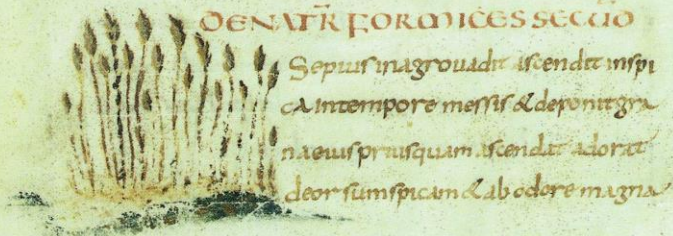 DE NATR FORMICES SECUD
Sepius in agro uadit ascendit in spi
ca in tempore messis & deponit gra
na eius priusquam ascendat adorat
deorsum spicam & ab odore magna